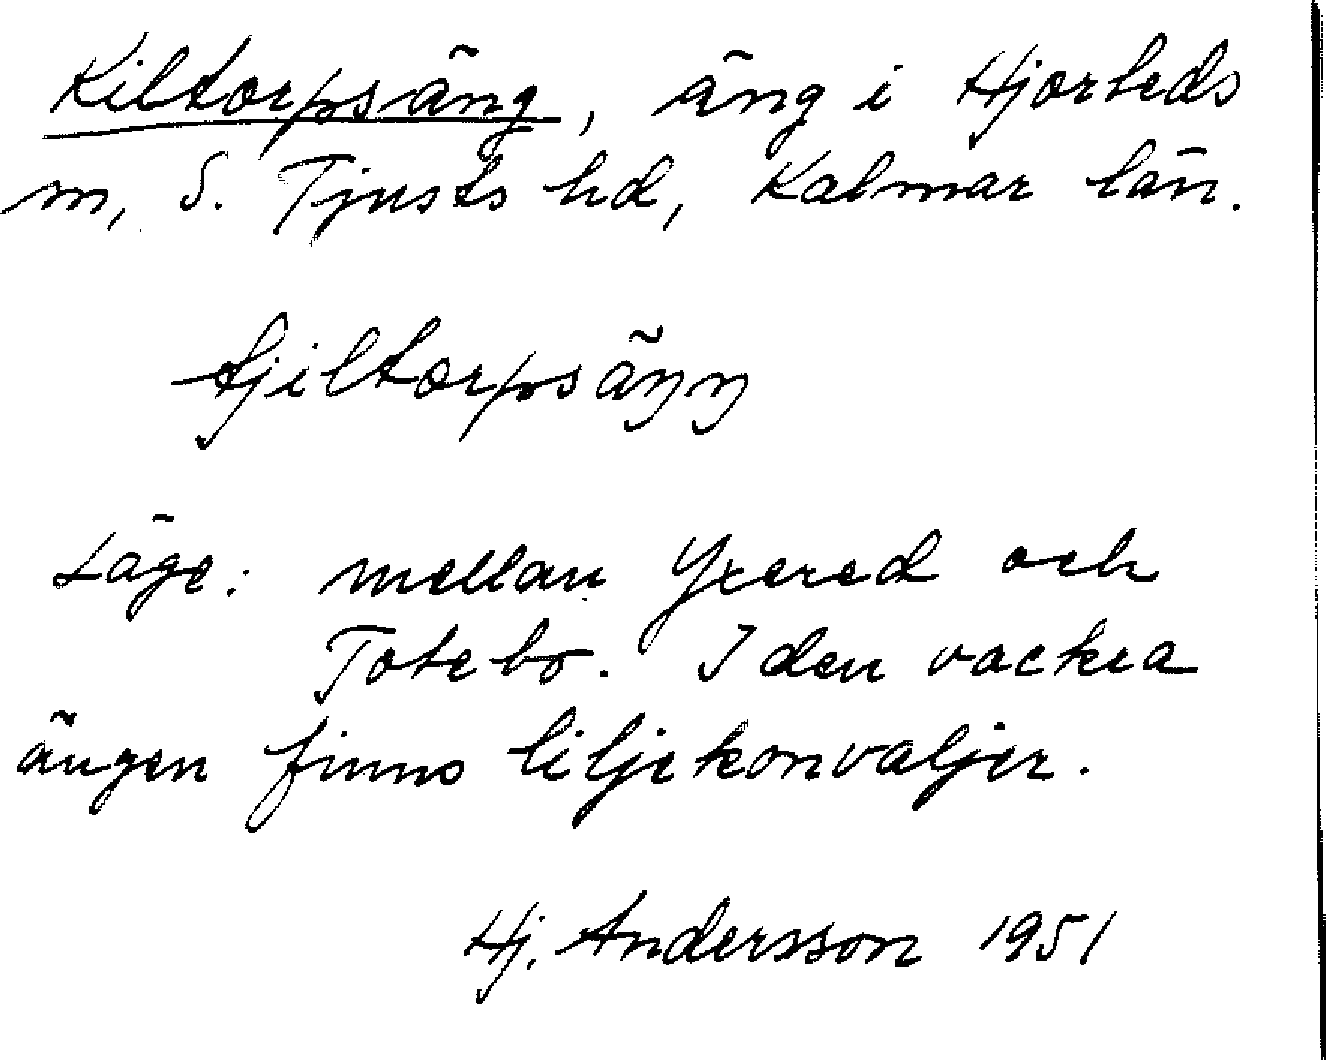 Kiltorpsäng, äng i Hjorteds
sn, S. Tjusts hd, Kalmar län.
tjiltorpsäŋŋ
Läge: mellan Yxered och
Totebo. I den vackra
ängen finns liljekonvaljer.
Hj. Andersson 1951